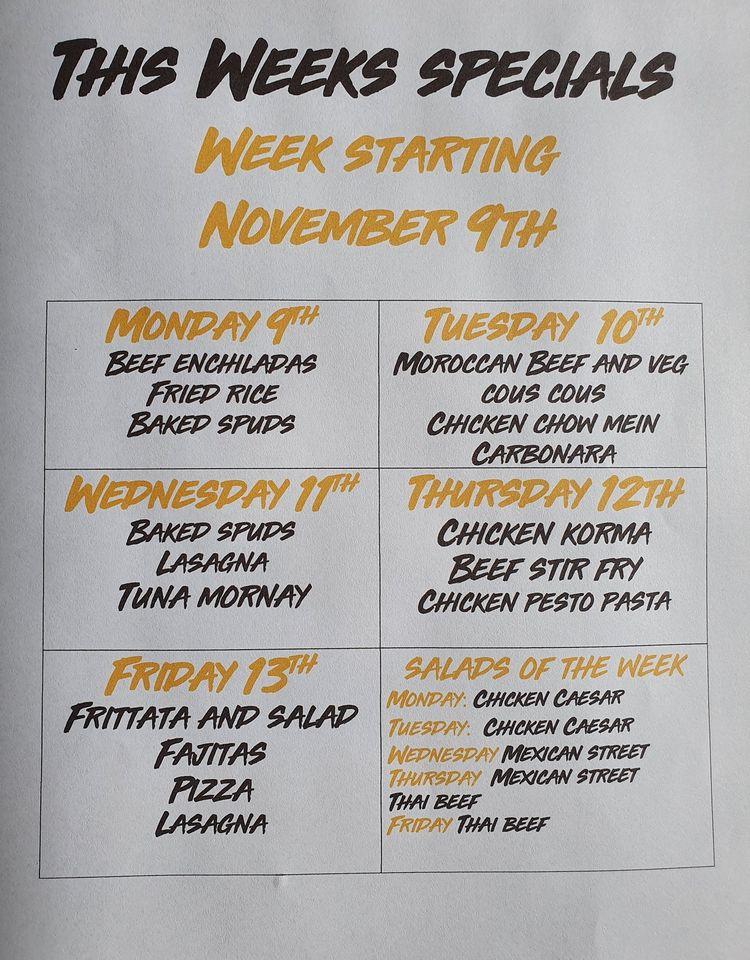 This Weeks specials
Week starting
November 9th
Monday 9th
Beef enchiladas
Fried rice
Baked spuds
Tuesday 10th
Moroccan Beef and veg
cous cous
Chicken chow mein
Carbonara
Wednesday 11th
Baked spuds
Lasagna
Tuna mornay
Thursday 12th
Chicken korma
Beef stir fry
Chicken pesto pasta
Friday 13th
Frittata and salad
Fajitas
Pizza
Lasagna
Salads of the week
Monday: Chicken Caesar
Tuesday: Chicken Caesar
Wednesday Mexican street
Thursday Mexican street
Thai beef
Friday Thai beef